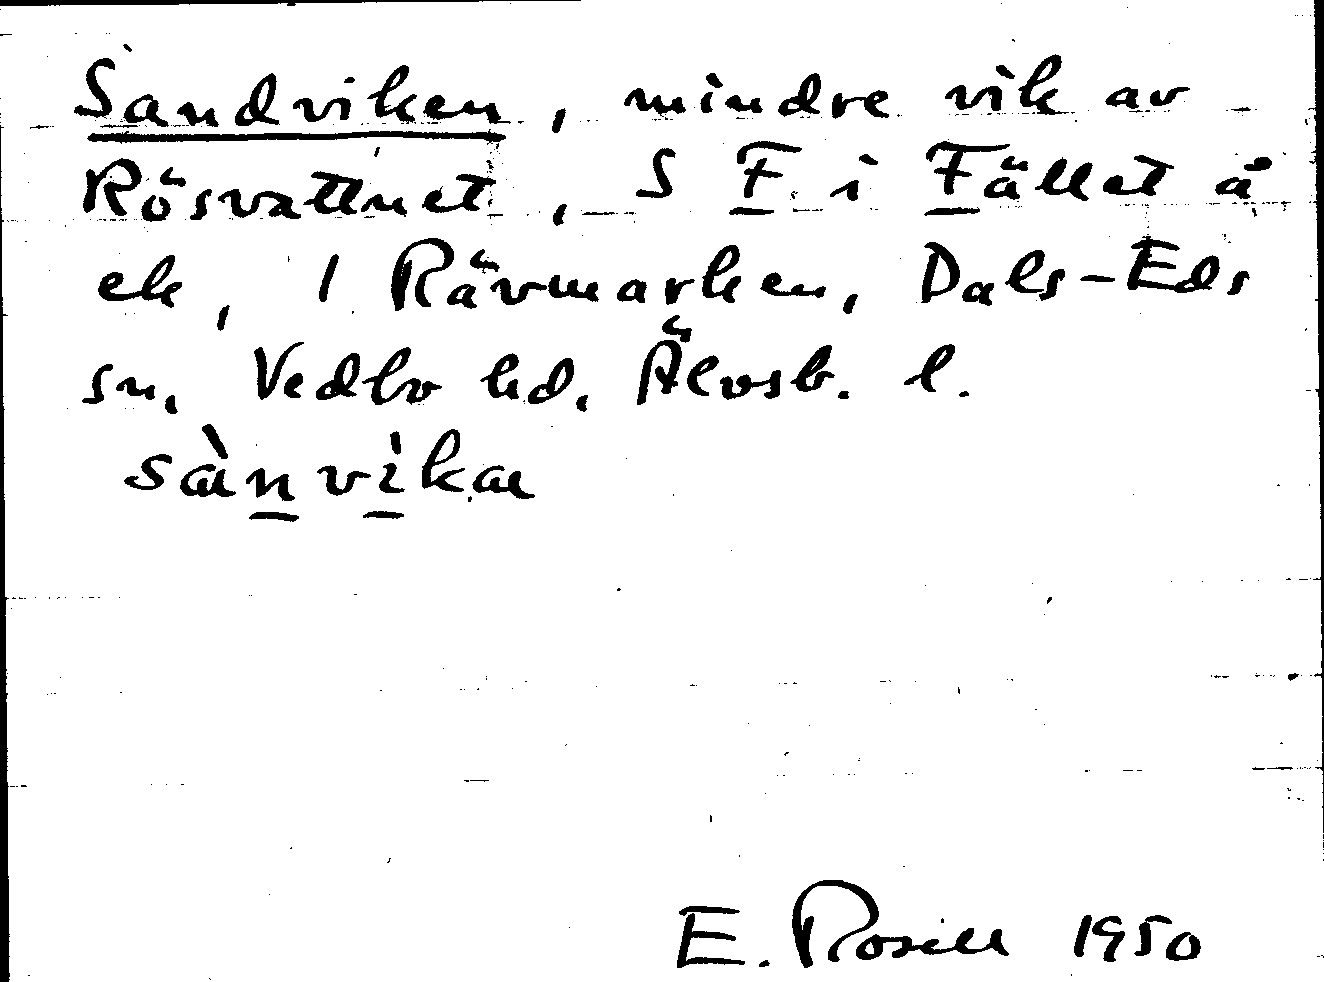 Sandviken, mindre vik av
Rösvattnet, S F i Fället å
ek, 1 Rävmarken, Dals-Eds
sn, Vedbo hd, Älvsb. l.
sànvìkaː
E. Rosell 1950